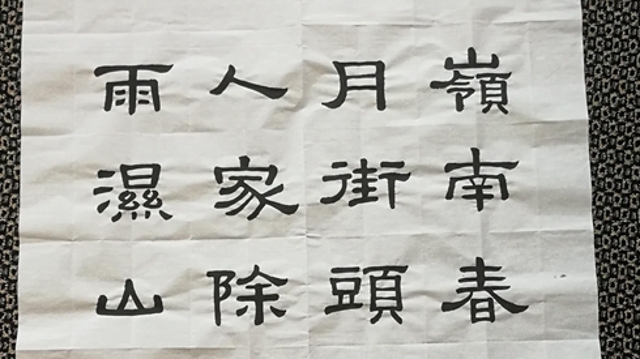 嶺南春
月街頭
人家除
雨濕山